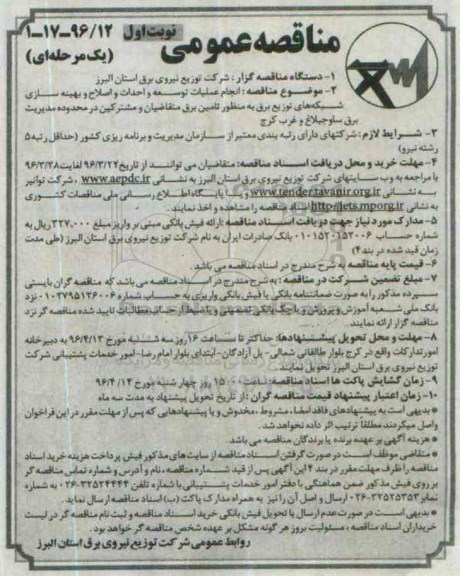 مناقصه عمومی
نوبت اول
۱-۱۷-۹۶/۱۲
(یک مرحله‌ای)
۱- دستگاه مناقصه گزار : شرکت توزیع نیروی برق استان البرز
۲- موضوع مناقصه : انجام عملیات توسعه و احداث و اصلاح و بهینه سازی
شبکه‌های توزیع برق به منظور تامین برق متقاضیان و مشترکین در محدوده مدیریت
برق ساوجبلاغ و غرب کرج
۳- شرایط لازم : شرکتهای دارای رتبه بندی معتبر از سازمان مدیریت و برنامه ریزی کشور (حداقل رتبه ۵
رشته نیرو)
۴- مهلت خرید و محل دریافت اسناد مناقصه: متقاضیان می توانند از تاریخ ۹۶/۳/۲۲ لغایت ۹۶/۳/۲۸
با مراجعه به وب سایتهای شرکت توزیع نیروی برق استان البرز به نشانی www.aepdc.ir ، شرکت توانیر
به نشانی www.tender.tavanir.org.ir و یا پایگاه اطلاع رسانی ملی مناقصات کشوری
به نشانی http://iets.mporg.ir اسناد مناقصه را مشاهده و اخذ نمایند.
۵- مدارک مورد نیاز جهت دریافت اسناد مناقصه :ارائه فیش بانکی مبنی بر واریز مبلغ ۳۲۷،۰۰۰ ریال به
شماره حساب ۰۱۰۱۵۲۰۱۵۲۰۰۶ بانک صادرات ایران به نام شرکت توزیع نیروی برق استان البرز (طی مدت
زمان قید شده در بند۴)
۶- قیمت پایه مناقصه به شرح مندرج در اسناد مناقصه می باشد.
۷- مبلغ تضمین شرکت در مناقصه : به شرح مندرج در اسناد مناقصه می باشد که مناقصه گران بایستی
سپرده مذکور را به صورت ضمانتنامه بانکی یا فیش بانکی واریزی به حساب شماره ۰۱۰۳۷۹۵۱۳۶۰۰۶ نزد
بانک ملی شعبه آموزش و پرورش و یا چک بانکی تضمینی و یا ضبط از حساب مطالبات تایید شده مناقصه گر نزد
مناقصه گزار ارائه نمایند.
۸- مهلت و محل تحویل پیشنهادها: حداکثر تا ساعت ۱۶ روز سه شنبه مورخ ۹۶/۴/۱۳ به دبیرخانه
امور تدارکات واقع در کرج بلوار طالقانی شمالی- پل آزادگان-ابتدای بلوار امام رضا- امور خدمات پشتیبانی شرکت
توزیع نیروی برق استان البرز تحویل نمایند.
۹- زمان گشایش پاکت ها اسناد مناقصه: ساعت ۱۵:۰۰ روز چهارشنبه مورخ ۹۶/۴/۱۴
۱۰- زمان اعتبار پیشنهاد قیمت مناقصه گران : از تاریخ تحویل پیشنهاد به مدت سه ماه
* بدیهی است به پیشنهادهای فاقد امضا، مشروط ، مخدوش و یا پیشنهادهایی که پس از مهلت مقرر در این فراخوان
واصل میگردند مطلقا ترتیب اثر داده نخواهد شد.
* هزینه آگهی بر عهده برنده یا برندگان مناقصه می باشد
* متقاضی موظف است در صورت گرفتن اسناد مناقصه از سایت های مذکور فیش پرداخت هزینه خرید اسناد
مناقصه را ظرف مهلت مقرر در بند ۴ این آگهی پس از قید شماره مناقصه ، نام و آدرس و شماره تماس مناقصه گر
بر روی فیش مذکور ضمن هماهنگی با دفتر امور خدمات پشتیبانی با شماره تلفن ۳۲۵۲۴۴۴۴-۰۲۶ به شماره
نمابر ۳۲۵۲۵۳۵۳-۰۲۶ ارسال و اصل آن را نیز به همراه مدارک پاکت (ب) اسناد مناقصه ارسال نماید .
* بدیهی است در صورت عدم ارسال یا تحویل فیش بانکی خرید اسناد مناقصه و ثبت نام مناقصه گر در لیست
خریداران اسناد مناقصه ، مسئولیت بروز هر گونه مشکل بر عهده شخص مناقصه گر خواهد بود .
روابط عمومی شرکت توزیع نیروی برق استان البرز